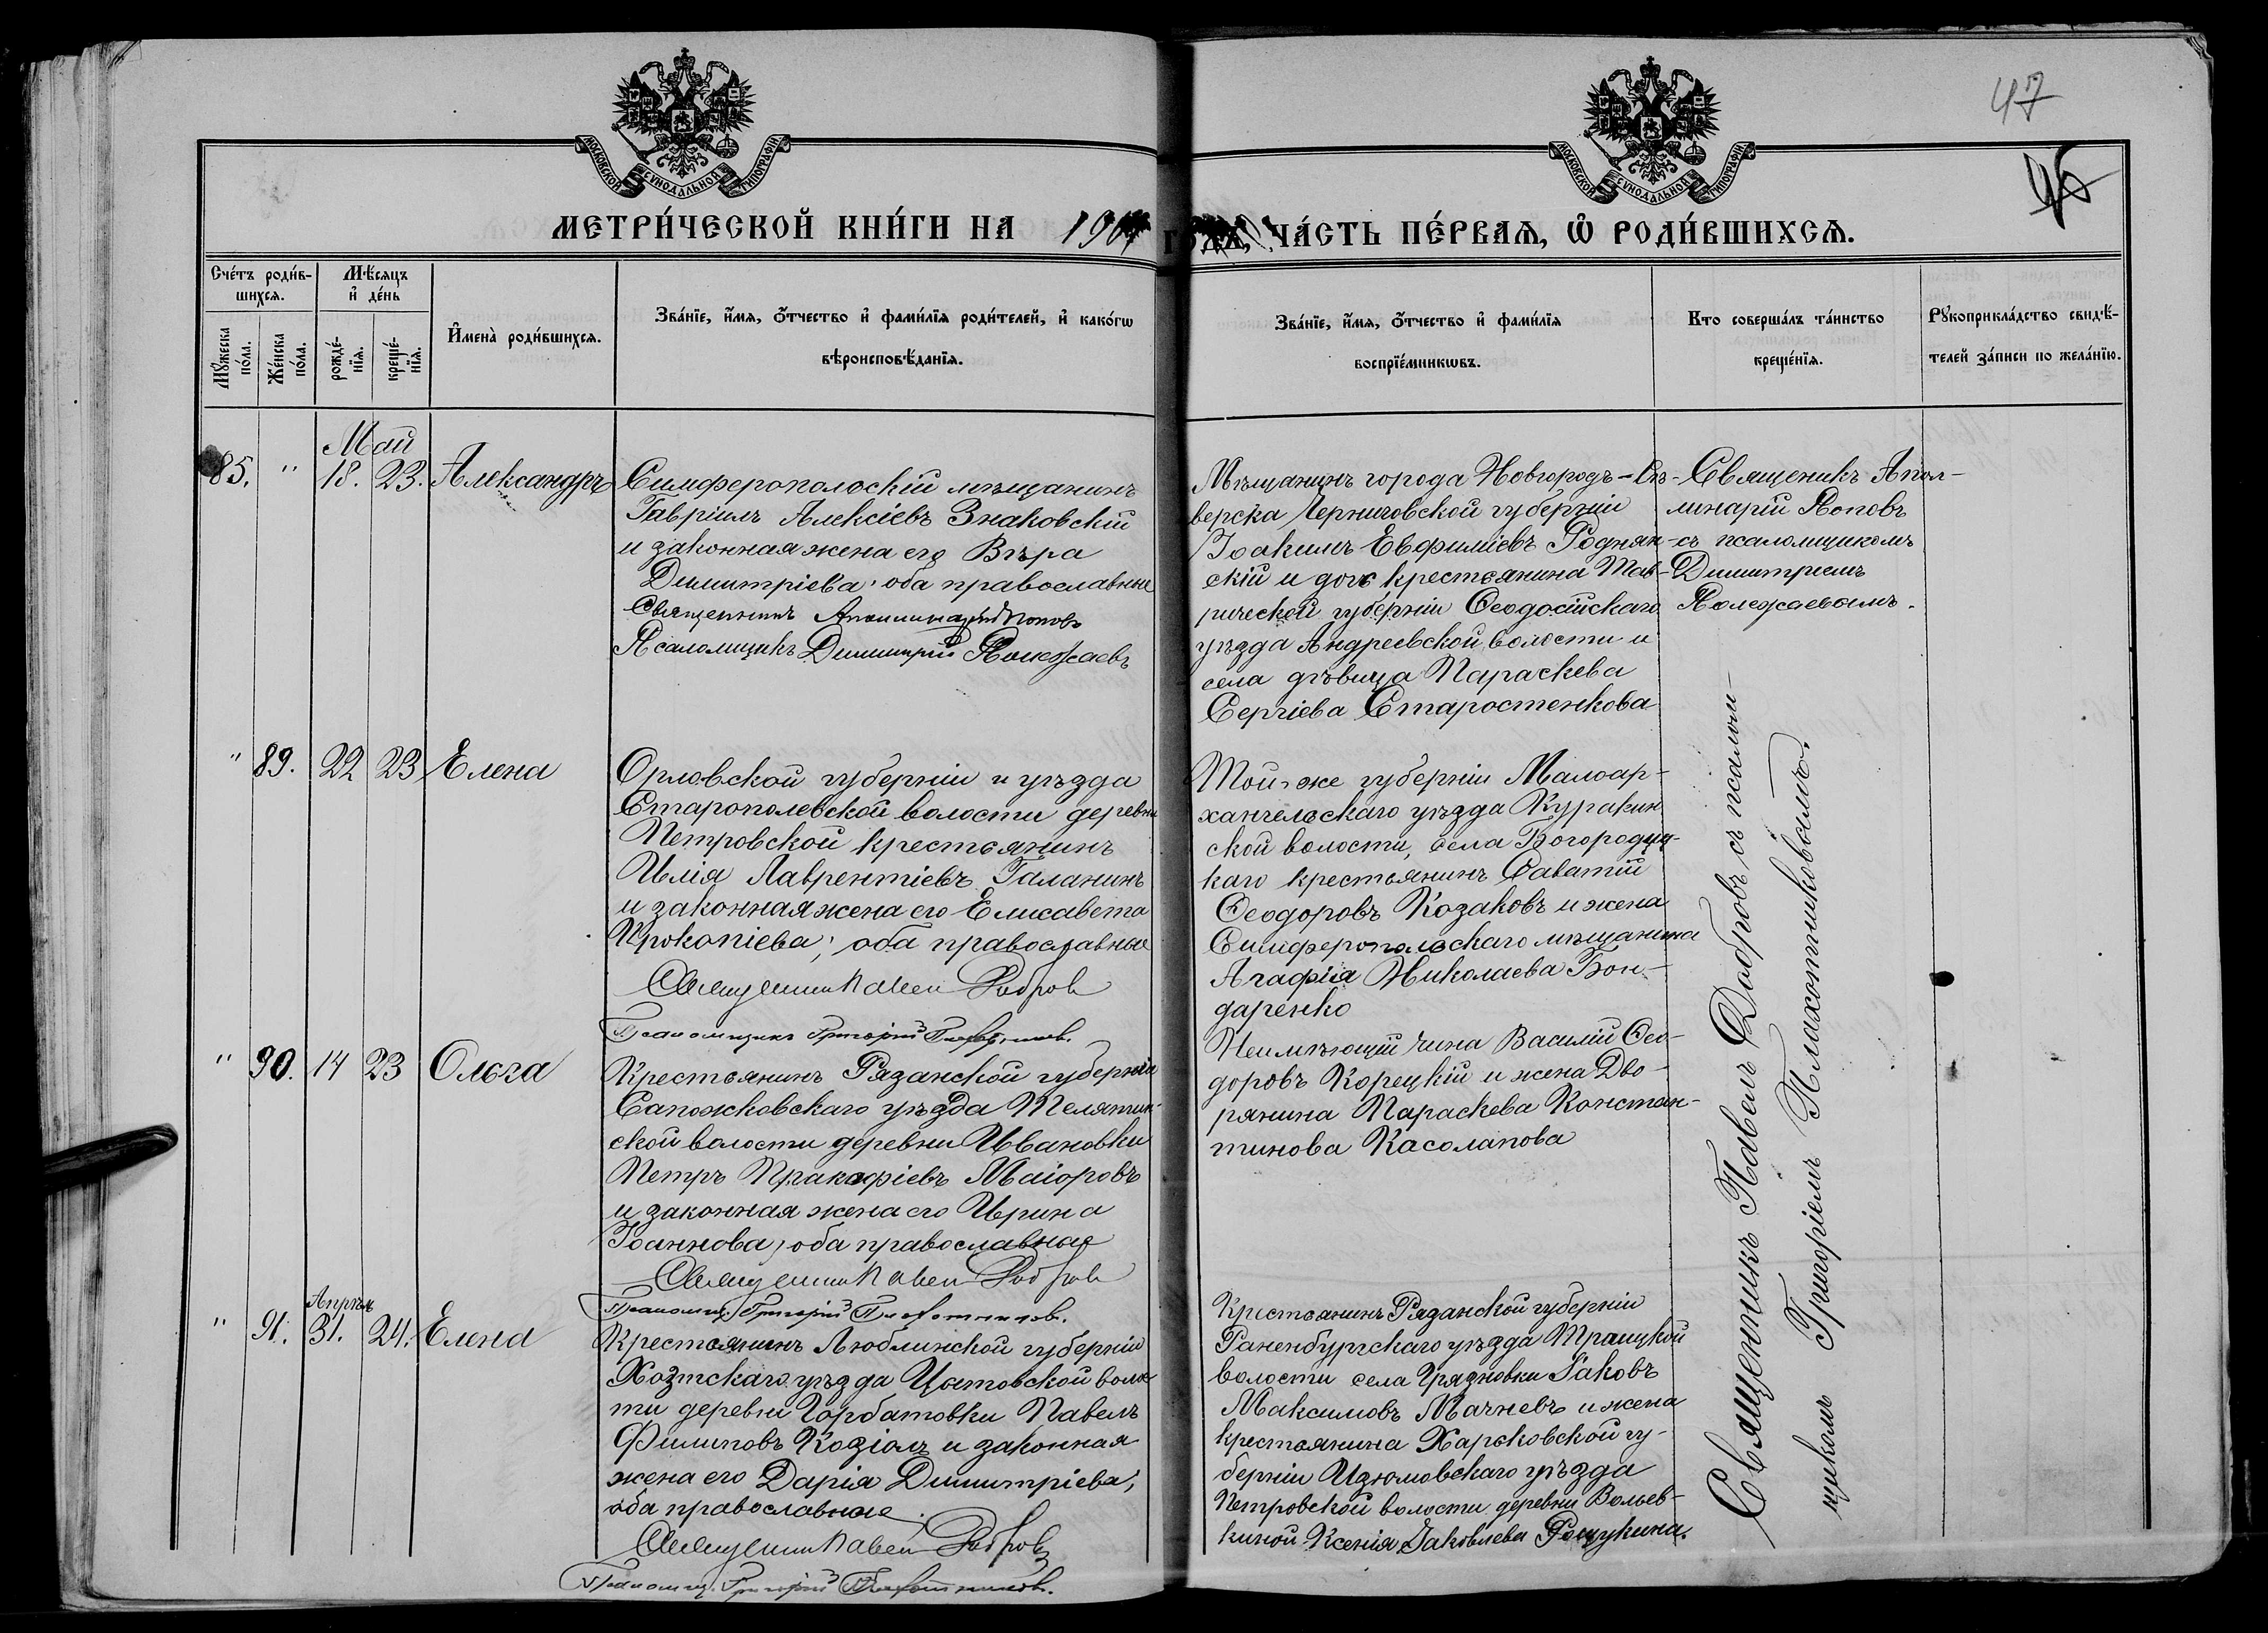 47
46
МОСКОВСКОЙ СѴНОДАЛЬНОЙ ТИПОГРАФІИ.
МОСКОВСКОЙ СѴНОДАЛЬНОЙ ТИПОГРАФІИ.
МЕТРИ́ЧЕСКОЙ КНИ́ГИ НА 190
ЧА́СТЬ ПЕ́РВАѦ, Ѽ РОДИ́ВШИХСѦ.
Сче́тъ роди́в-
шихсѧ.
Мѣ́сѧцъ
и҆ де́нь
Мꙋ́жеска
по́ла.
Же́нска
по́ла.
рожде́-
нїѧ.
креще́-
нїѧ.
И҆мена̀ роди́вшихсѧ.
Зва́нїе, и҆́мѧ, ѻ҆́тчество и҆ фами́лїѧ роди́телей, и҆ како́гѡ
вѣроисповѣ́данїѧ.
Зва́нїе, и҆́мѧ, ѻ҆́тчество и҆ фами́лїѧ
воспрїе́мникѡвъ.
Кто соверша́лъ та́инство
креще́нїѧ.
Рꙋкоприкла́дство свидѣ́-
телей за́писи по жела́нїю.
Май
85. " 18. 23. Александръ
Симферополоскій мѣщанинъ
Гавріилъ Алексіевъ Знаковскій
и законная жена его Вѣра
Димитріева; оба православные
Священникъ Аполлинарій Поповъ
Псаломщикъ Димитрій Полежаевъ
Мѣщанинъ города Новгородъ-Сѣ-
верска Черниговской губерніи
Іоакимъ Евфиміевъ Роднян-
скій и дочь крестьянина Тав-
рической губерніи Ѳеодосійскаго
уѣзда Андреевской волости и
села дѣвица Параскева
Сергіева Старостенкова
Священикъ Апол-
линарій Поповъ
съ псаломщикомъ
Димитріемъ
Полежаевымъ.
" 89. 22 23 Елена
Орловской губерніи и уѣзда
Старополевской волости деревни
Петровской крестьянинъ
Илія Лаврентіевъ Галанинъ
и законная жена его Елисавета
Прокопіева; оба православные
Священникъ Павелъ Добровъ
Псаломщикъ Григорій Плахотниковъ.
Той-же губерніи Малоар-
хангельскаго уѣзда Куракин
ской волости, села Богородиц-
каго крестьянинъ Саватій
Ѳеодоровъ Козаковъ и жена
Симферопольскаго мѣщанина
Агафія Николаева Бон-
даренко
" 90. 14 23 Ольга
Крестьянинъ Рязанской губерніи
Сапожковскаго уѣзда Телятин-
ской волости деревни Ивановки
Петръ Пракофіевъ Маіоровъ
и законная жена его Ирина
Іоаннова, оба православные
Священникъ Павелъ Добровъ
Псаломщ. Григорій Плахотниковъ.
Неимѣющій чина Василій Ѳео-
доровъ Корецкій и жена Дво-
рянина Параскева Констан-
тинова Касолапова
Апрѣль
" 91. 31. 24. Елена
Крестьянинъ Люблинской губерніи
уѣзда волос
ти деревни Горбатовки Павелъ
Филиповъ Козіолъ и законная
жена его Дарія Димитріева;
оба православные
Священникъ Павелъ Добровъ
Псаломщ. Григорій Плахотниковъ.
Крестьянинъ Рязанской губерніи
Раненбургскаго уѣзда Траицкой
волости села Грязновки Іаковъ
Максимовъ Мачневъ и жена
крестьянина Харьковской гу-
берніи Изюмовскаго уѣзда
Петровской волости деревни Вольев-
киной Ксенія Іаковлева Рощукина.
Священникъ Павелъ Добровъ съ псалом-
щикомъ Григоріемъ Плахотниковымъ.